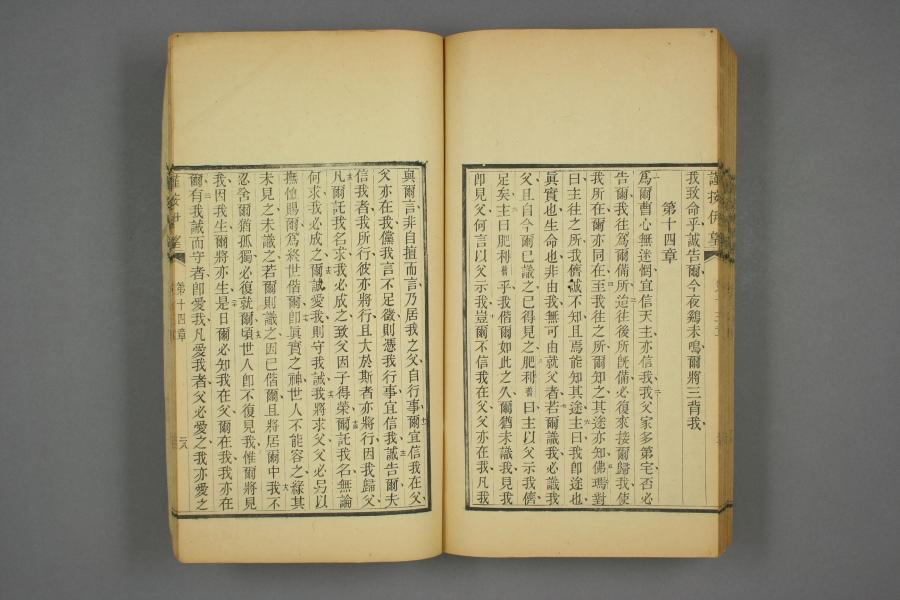 我致命乎誠告爾、今夜鷄未鳴、爾將三背我、
第十四章
爲爾曹心無迷惘、宜信天主、亦信我、我父家多第宅、否必
告爾、我往爲爾備所、迨往後所旣備、必復來接爾歸我、使
我所在、爾亦同在、至我往之所、爾知之、其途亦知、佛瑪對
曰、主往之所、我儕誠不知、且焉能知其途、主曰、我卽途也、
眞實也、生命也、非由我、無可由就父者、若爾識我、必識我
父、且自今爾已識之、已得見之、肥利曰、主以父示我儕、
足矣、主曰、肥利乎、我偕爾如此之久、爾猶未識我、見我
卽見父、何言以父示我、豈爾不信我在父、父亦在我、凡我
與爾言、非自擅而言、乃居我之父、自行事、爾宜信我在父、
父亦在我、儻我言不足徵、則憑我行事宜信、我誠告爾、夫
信我者、我所行、彼亦將行、且大於斯者亦將行、因我歸父、
凡爾託我名求、我必成之、致父因子得榮、爾託我名、無論
何求、我必成之、爾誠愛我、則守我誡、我將求父、父必另以
撫恤賜爾、爲終世偕爾、卽眞實之神、世人不能容之、緣其
未見之、未識之、若爾則識之、因已偕爾、且將居爾中、我不
忍舍爾猶孤獨、必復就爾、頃世人卽不復見我、惟爾將見
我、因我生、爾將亦生、是日爾必知我在父、爾在我、我亦在
爾、有我誡而守者、卽愛我、凡愛我者、父必愛之、我亦愛之
第十四章